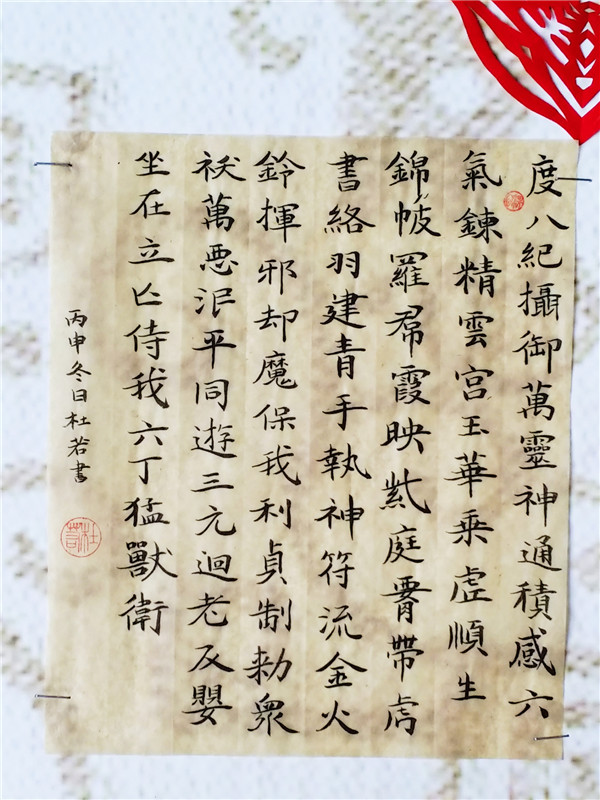 度八紀攝御萬靈神通積感六
氣鍊精雲宮玉華乘虛順生
錦帔羅帬霞映紫庭腰帶虎
書絡羽建青手執神符流金火
鈴揮邪却魔保我利貞制勑衆
祅萬惡泯平同遊三元迴老反嬰
坐在立亡侍我六丁猛獸衛
丙申冬日杜若書
杜若